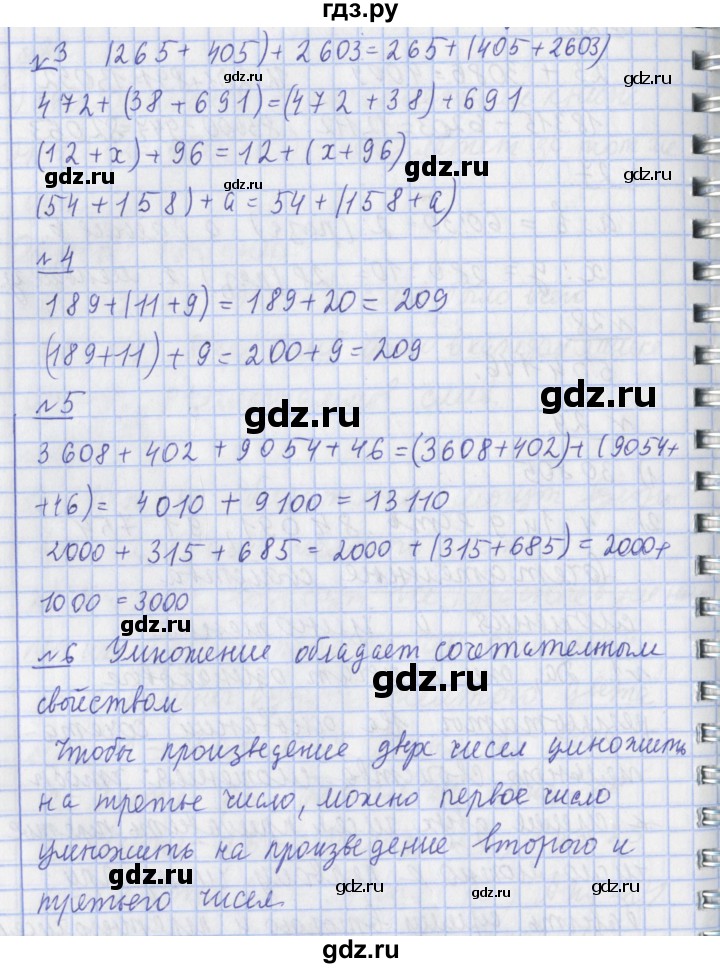 гдз.ру
№3 (265 + 405) + 2603 = 265 + (405 + 2603)
472 + (38 + 691) = (472 + 38) + 691
(12 + x) + 96 = 12 + (x + 96)
(54 + 158) + a = 54 + (158 + a)
№4
189 + (11 + 9) = 189 + 20 = 209
(189 + 11) + 9 = 200 + 9 = 209
№5
3608 + 402 + 9054 + 46 = (3608 + 402) + (9054 +
+46) = 4010 + 9100 = 13110
2000 + 315 + 685 = 2000 + (315 + 685) = 2000 +
1000 = 3000
№6 Умножение обладает сочетательным
свойством
Чтобы произведение двух чисел умножить
на третье число, можно первое число
умножить на произведение второго и
третьего чисел.
gdz.ru